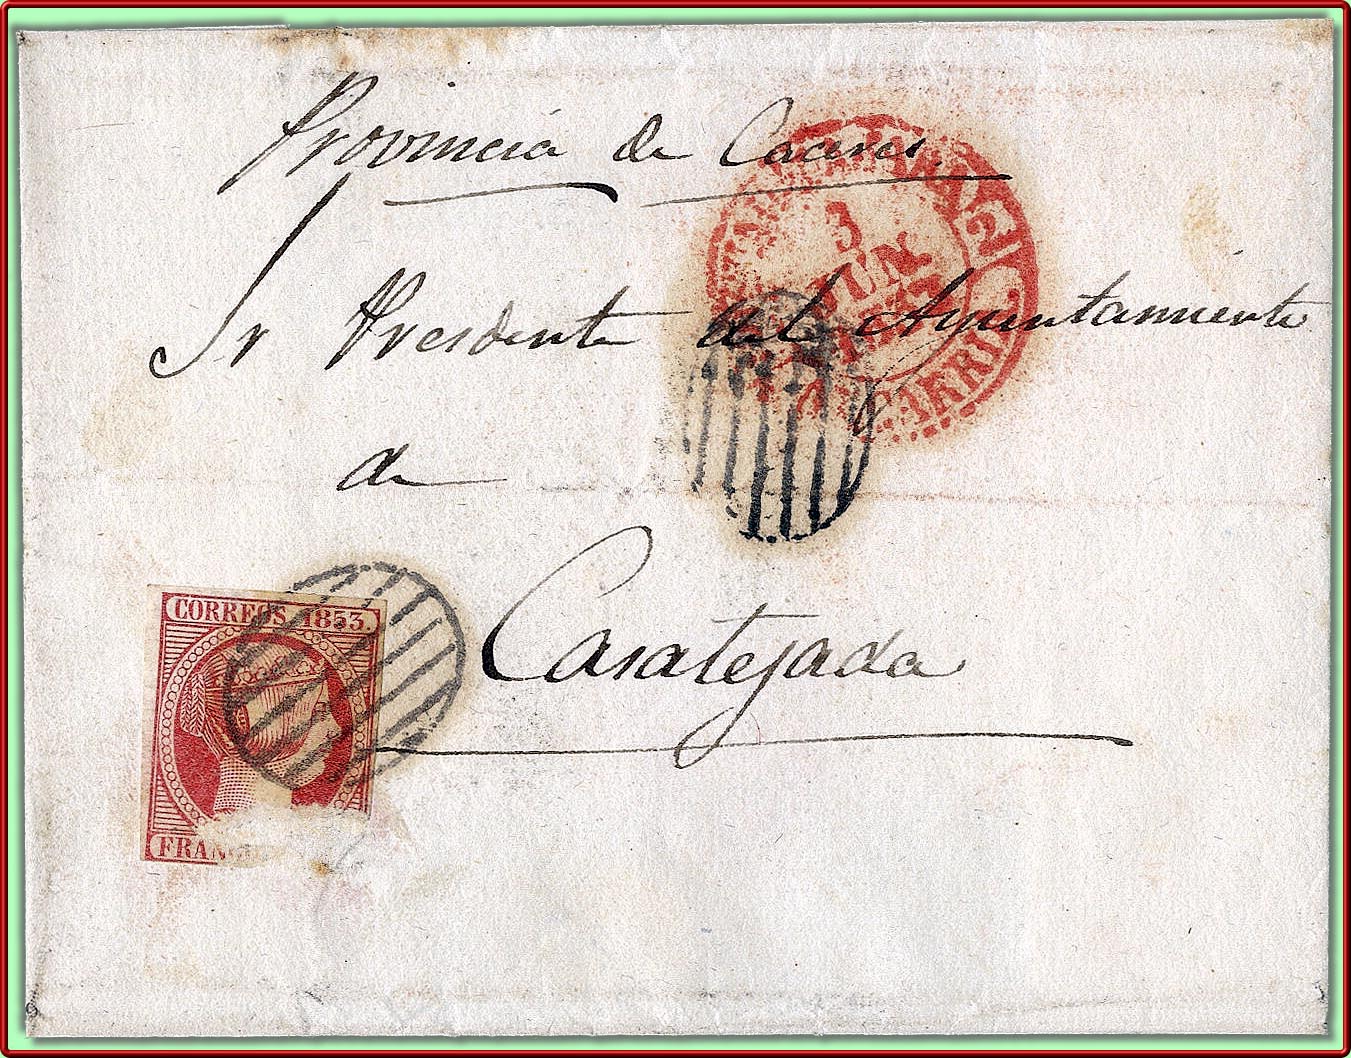 Provincia de Caceres.
Sr Presidente del Ayuntamiento
de
Casatejada
3
JUN
CORREOS 1853.
FRAN